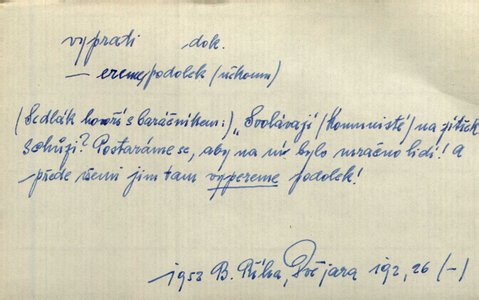 vyprati dok.
— ereme podolek (někomu)
(Sedlák hovoří s baráčníkem:) „Svolávají (Komunisté) na zítřek
schůzi? Postaráme se, aby na ní bylo mračno lidí! A
přede všemi jim tam vypereme podolek!
1952 B. Říha, Dvě jara 192, 26 (—)